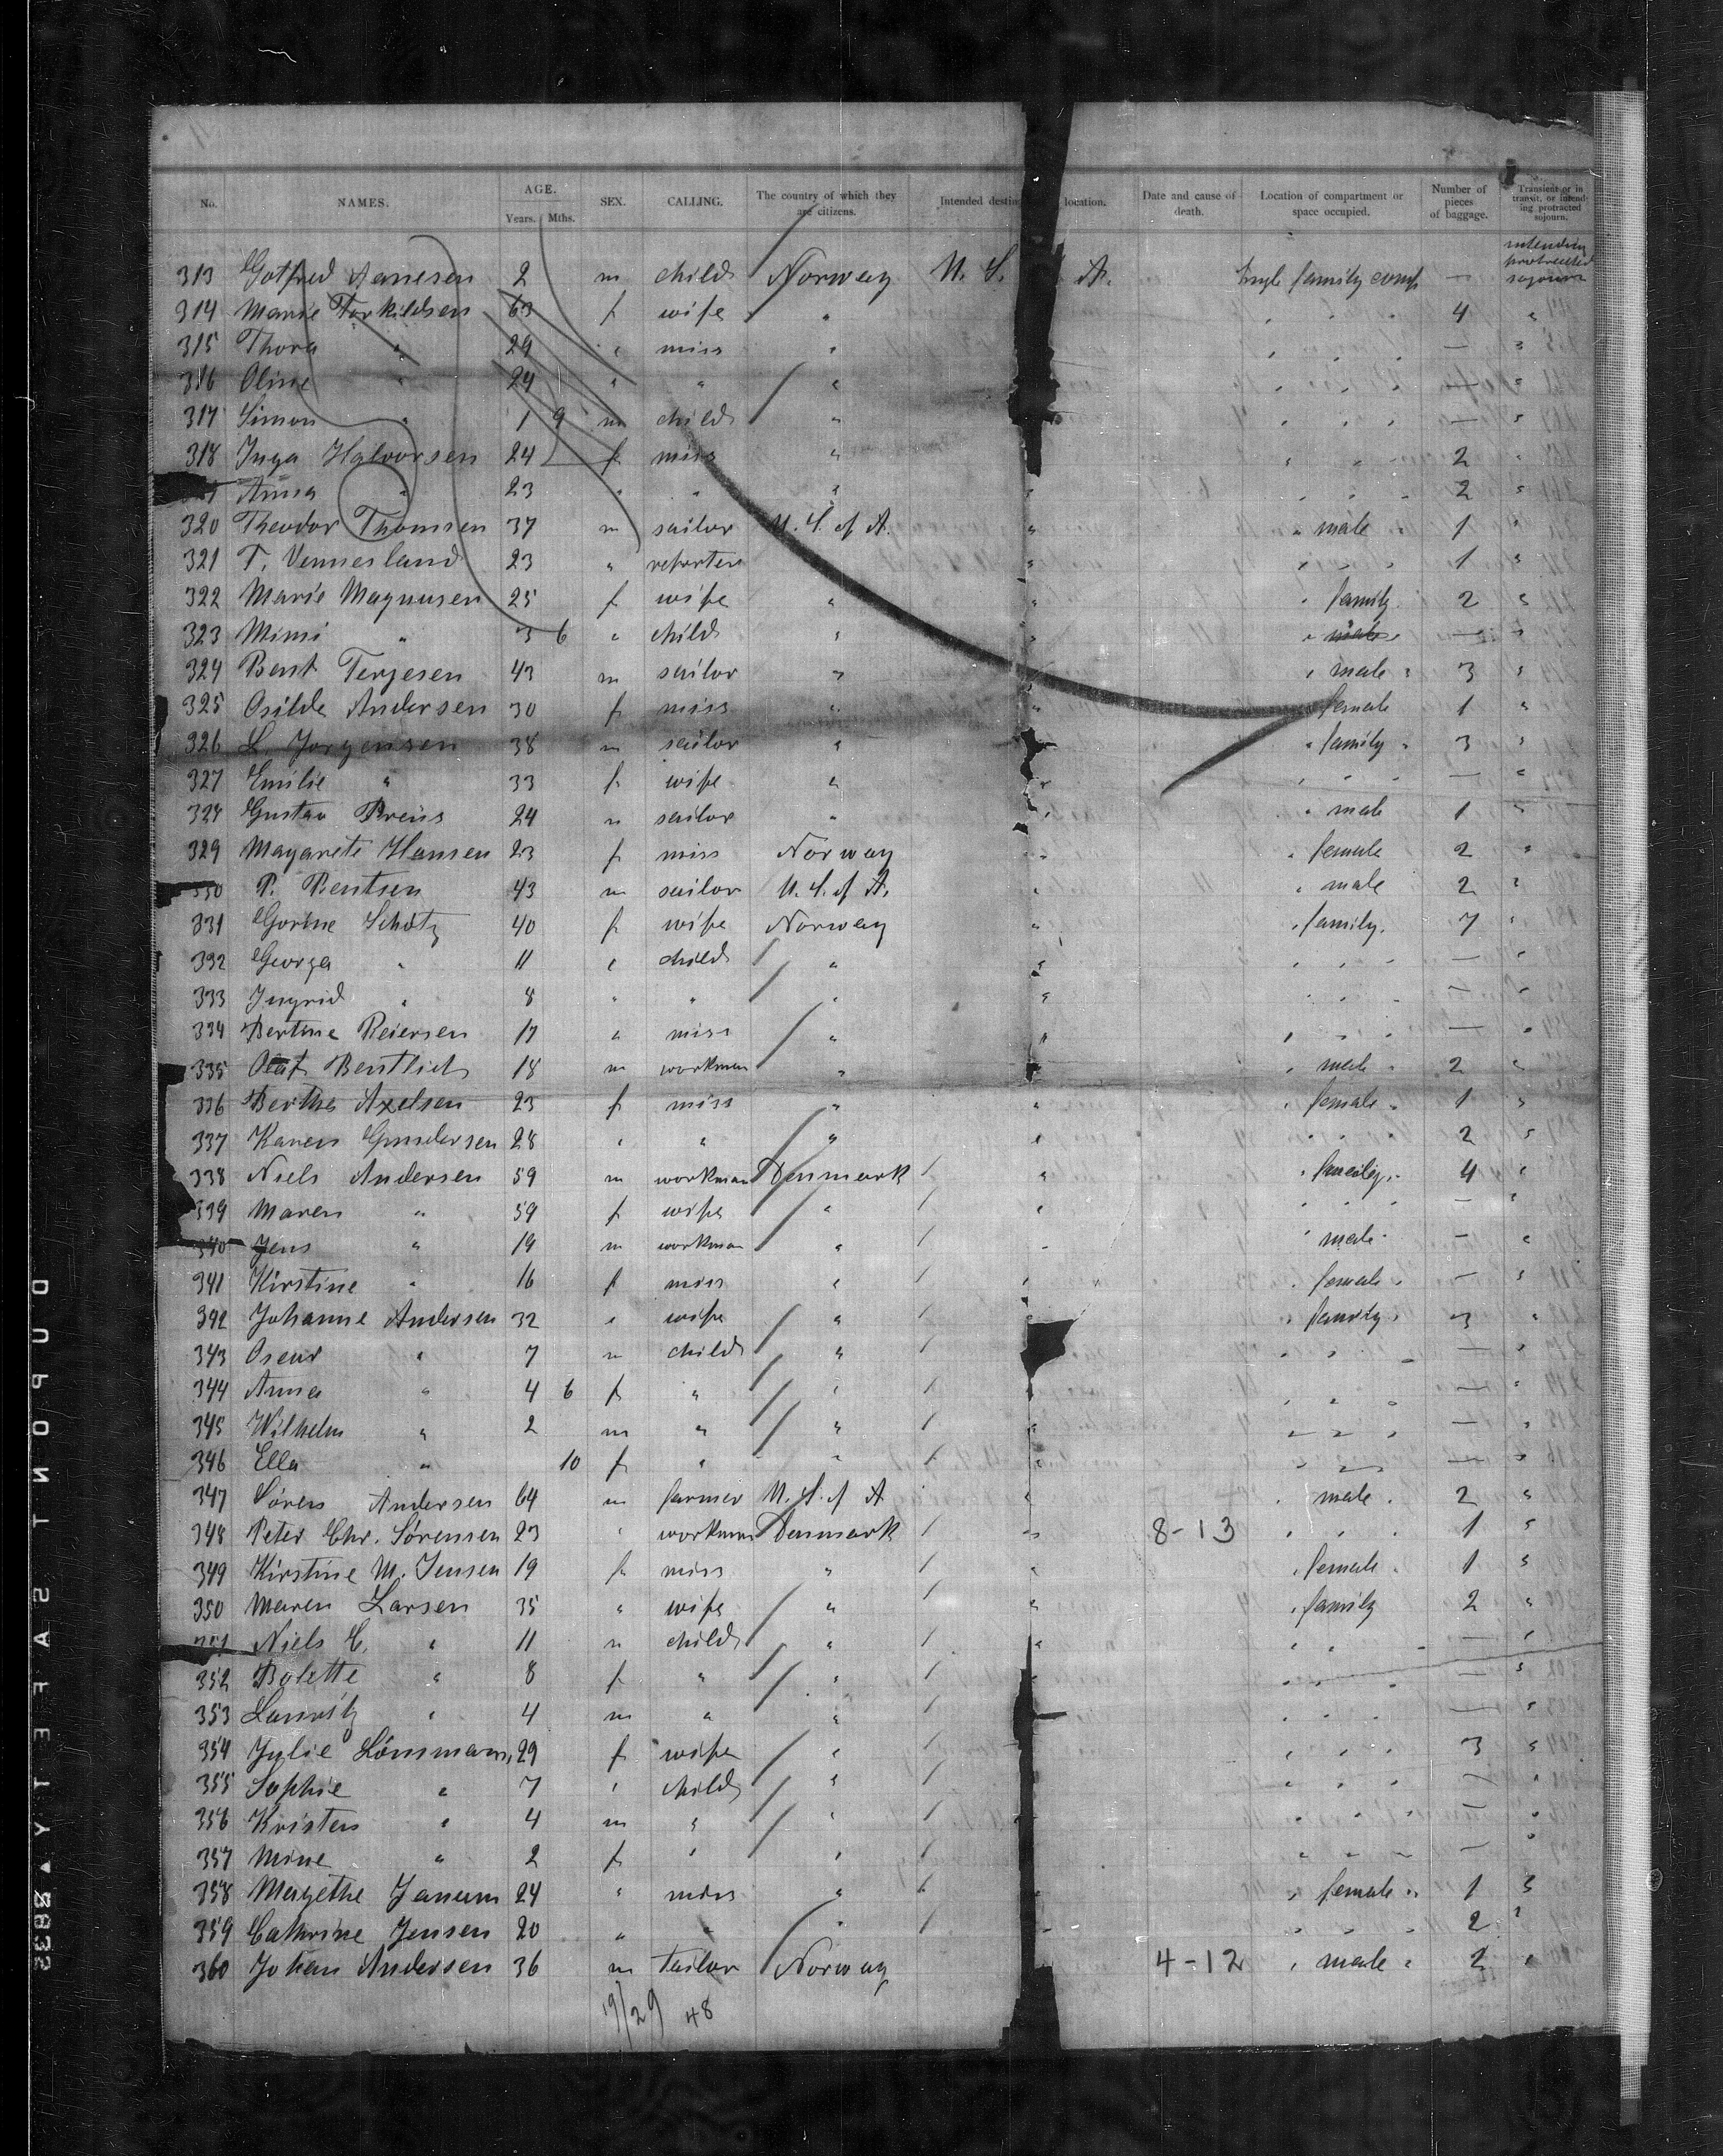 No. NAMES. AGE. Years. Mths. SEX. CALLING. The country of which they are citizens. Intended destin location. Date and cause of death. Location of compartment or space occupied. Number of pieces of baggage. Transient or in transit, or intending protracted sojourn.
313 Gotfred 2 m child Norway U. S. A. family comp — intending protracted sojourn
314 Marie Torkildsen 63 f wife " 4 "
315 Thora " 29 " miss " — "
316 Oline " 24 " " " — "
317 Simon " 1 9 m child " — "
318 Inga Halvorsen 24 f miss " 2 "
Anna " 23 " " " " 2 "
320 Theodor Thomsen 37 m sailor U. S. of A. " " male " 1 "
321 T. Vennesland 23 " " 1 "
322 Marie Magnusen 25 f wife " " " family 2 "
323 Mimi " 3 6 " child " " " — "
324 Bent Terjesen 43 m sailor " " male " 3 "
325 Osilde Andersen 30 f miss " " female 1 "
326 L. Jorgensen 38 m sailor " " family " 3 "
327 Emilie " 33 f wife " " — "
328 Gustav Preus 24 m sailor " " " male 1 "
329 Magarete Hansen 23 f miss Norway " " female 2 "
330 P. Bentsen 43 m sailor U. S. of A. " " male 2 "
331 Gorine Schotz 40 f wife Norway " " family. 7 "
332 Georga " 11 " child " " — "
333 Ingrid " 8 " " " " — "
334 Bertine Reiersen 17 " miss " " — "
335 Bentlid 18 m workman " " male " 2 "
336 Berthe Axelsen 23 f miss " " " female " 1 "
337 Karen Gundersen 28 " " " " 2 "
338 Niels Andersen 59 m workman Denmark " " family. 4 "
339 Maren " 59 f wife " " — "
340 Jens " 19 m workman " " " male — "
341 Kirstine " 16 f miss " " " female " — "
342 Johanne Andersen 32 " wife " " " family " 3 "
343 Oscar " 7 m child " — "
344 Anna " 4 6 f " " — "
345 Wilhelm " 2 m " " " — "
346 Ella " 10 f " " " — "
347 Sören Andersen 64 m farmer U. S. of A " " male " 2 "
348 Peter Chr. Sörensen 23 " workman Denmark " 8-13 1 "
349 Kirstine M. Jensen 19 f miss " " " female " 1 "
350 Maren Larsen 35 " wife " " " family 2 "
351 Niels C. " 11 m child " " — "
352 Bolette " 8 f " " " — "
353 Lauritz " 4 m " " — "
354 Julie 29 f wife " 3 "
355 Sophie " 7 " child " — "
356 Kristen " 4 m " " — "
357 Mine " 2 f " " — "
358 Magethe 24 " miss " " " female " 1 "
359 Cathrine Jensen 20 " " " " 2 "
360 Johan Andersen 36 m tailor Norway 4-12 " male " 2 "
19/29 48
DUPONT SAFETY ▲ 8833